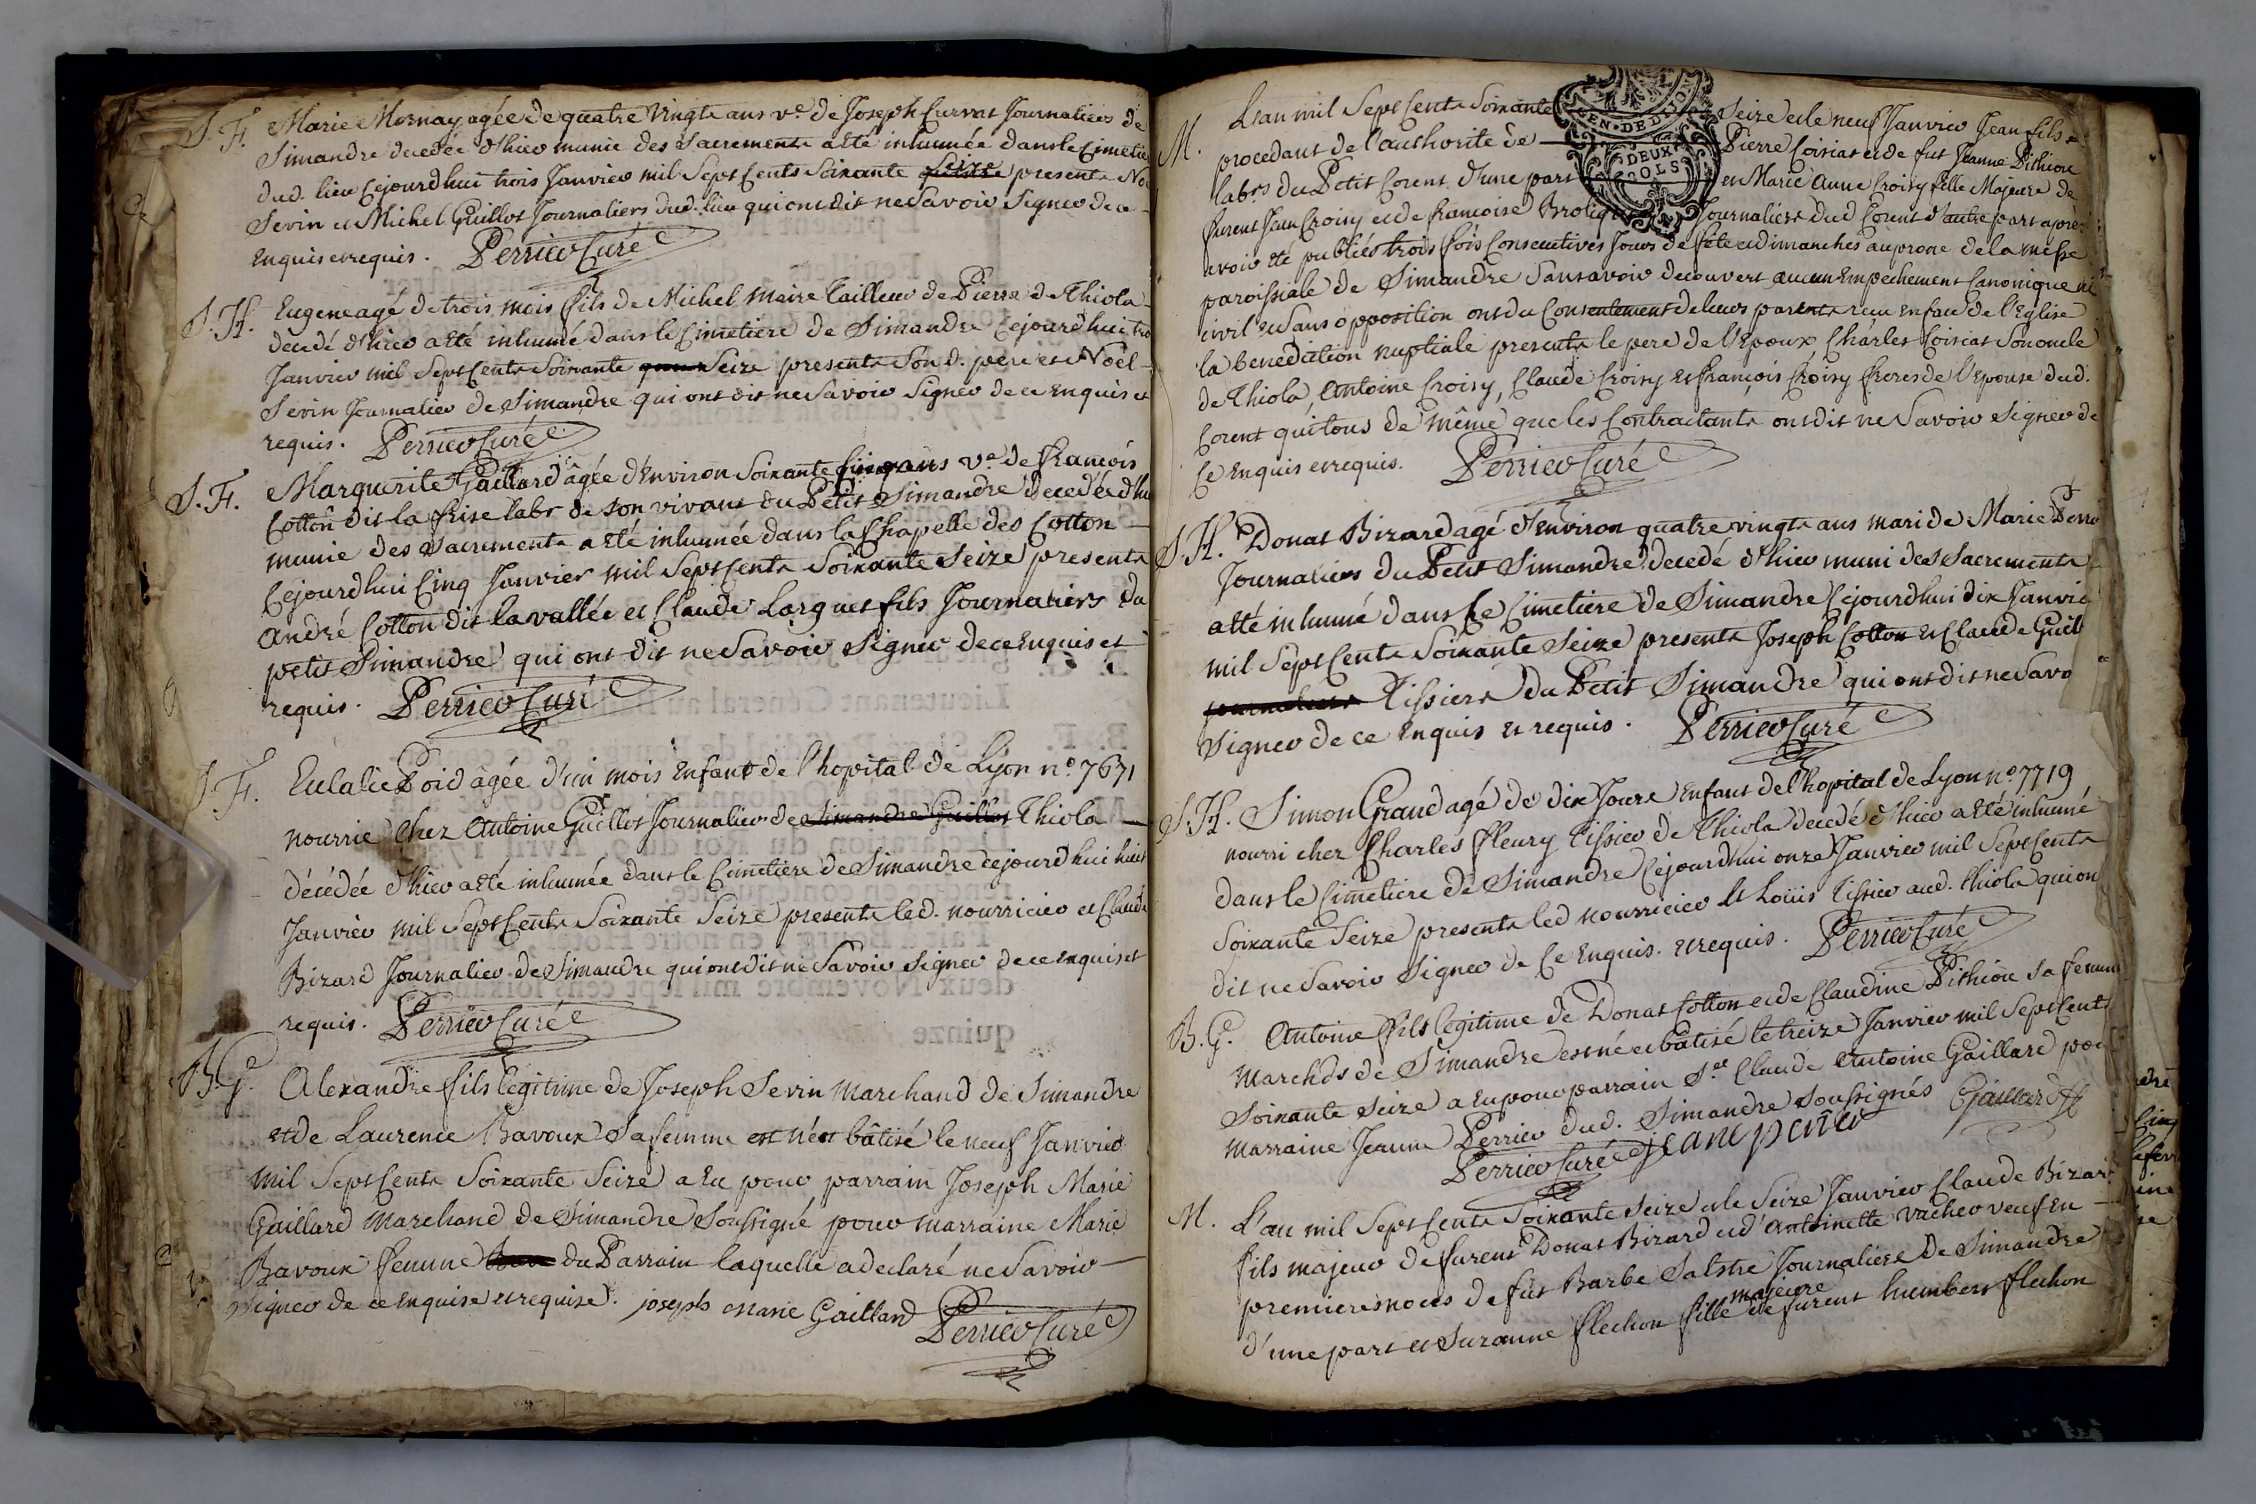 S. F. Marie Mornay agée de quatre vingts ans v.e de Joseph Curvat Journaliers de
Simandre decedée d'hier munie des Sacrements a eté inhumée dans le Cimetie
dud. lieu Cejourd'hui trois Janvier mil Sept Cents Soixante seize presents No
Sevin et Michel Guillot Journaliers dud. lieu qui ont dit ne Savoir Signer de ce
Enquis et requis. Perrier Curé
S. H. Eugene agé de trois mois fils de Michel Maire Tailleur de Pierre de Thiola
decedé d'hier a eté inhumé dans le Cimetiere de Simandre Cejourd'hui tro
Janvier mil Sept Cents Soixante Seize presents Son d. pere et Noël
Sevin Journalier de Simandre qui ont dit ne Savoir Signer de ce Enquis et
requis. Perrier Curé
S. F. Marguerite Gaillard âgée d'Environ Soixante Cinq ans v.e de francois
Cotton dit la frise labr de son vivant du Petit Simandre decedée d'hi
munie des Sacrements a eté inhumée dans la Chapelle des Cotton
Cejourd'hui Cinq Janvier mil Sept Cents Soixante Seize presents
André Cotton dit la vallée et Claude Larguet fils Journaliers du
petit Simandre qui ont dit ne Savoir Signer de ce Enquis et
requis. Perrier Curé
S. F. Eulalie Poid âgée d'un mois Enfant de l'hopital de Lyon n.o 7671
nourrie chez Antoine Guillot Journalier de Simandre Guillot Thiola
décédée d'hier a eté inhumée dans le Cimetiere de Simandre cejourd'hui huit
Janvier mil Sept Cents Soixante Seize presents led. nourricier et Claude
Bizard Journalier de Simandre qui ont dit ne Savoir Signer de ce enquis et
requis. Perrier Curé
B. G. Alexandre fils legitime de Joseph Sevin Marchand de Simandre
et de Laurence Bavoux Sa femme est né et bâtisé le neuf Janvier
mil Sept Cents Soixante Seize a Eu pour parrain Joseph Marie
Gaillard Marchand de Simandre Soussigné pour marraine Marie
Bavoux femme du Parrain laquelle a declaré ne Savoir
Signer de ce enquise et requise. joseph marie Gaillard Perrier Curé
L'an mil Sept Cents Soixante Seize et le neuf Janvier Jean fils
M. procedant de l'authorité de Pierre Coisiat et de fut Jeanne Pithiou
lab.rs du Petit Corent d'une part et Marie Anne Croisy fille Majeure de
furent Jean Croisy et de francoise Journaliers dud Corent d'autre part apres
avoir eté publiés trois fois Consecutives Jours de fête et dimanches au prone de la messe
paroissiale de Simandre Sans avoir decouvert aucun Empechement Canonique ni
civil et Sans opposition ont du Consentement de leurs parents recu en face de l'Eglise
la benediction nuptiale presents le pere de l'Epoux Charles Coisiat Son oncle
de Thiola, Antoine Croisy, Claude Croisy et francois Croisy freres de l'Epouse dud.
Corent qui tous de même que les Contractants ont dit ne Savoir Signer de
Ce Enquis et requis. Perrier Curé
S. H. Donat Bizard agé d'Environ quatre vingts ans mari de Marie Perri
Journaliers du Petit Simandre decedé d'hier muni des Sacrements
a eté inhumé dans le Cimetiere de Simandre Cejourd'hui dix Janvie
mil Sept Cents Soixante Seize presents Joseph Cotton et Claude Guill
journaliers Tissiers du Petit Simandre qui ont dit ne Savo
Signer de ce Enquis et requis. Perrier Curé
S. H. Simon Grand agé de dix Jours Enfant de l'hopital de Lyon n.o 7719
nourri chez Charles fleury Tissier de Thiola decedé d'hier a eté inhumé
dans le Cimetiere de Simandre Cejourd'hui onze Janvier mil Sept Cents
Soixante Seize presents led nourricier et Louis Tissier aud. Thiola qui on
dit ne Savoir Signer de Ce Enquis. et requis. Perrier Curé
B. G. Antoine fils legitime de Donat Cotton et de Claudine Pithiou Sa femme
Marchds de Simandre est né et bâtisé le treize Janvier mil Sept Cents
Soixante Seize a eu pour parrain S.r Claude Antoine Gaillard pou
marraine Jeanne Perrier dud. Simandre Soussignés Gaillard
Perrier Curé jeane perier
M. L'an mil Sept Cents Soixante Seize et le Seize Janvier Claude Bizard
fils majeur de furent Donat Bizard et d'Antoinette Vacher veuf en
premieres noces de fut Barbe Journaliers de Simandre
majeure
d'une part et Suzanne flechon fille de furent humbert flechon